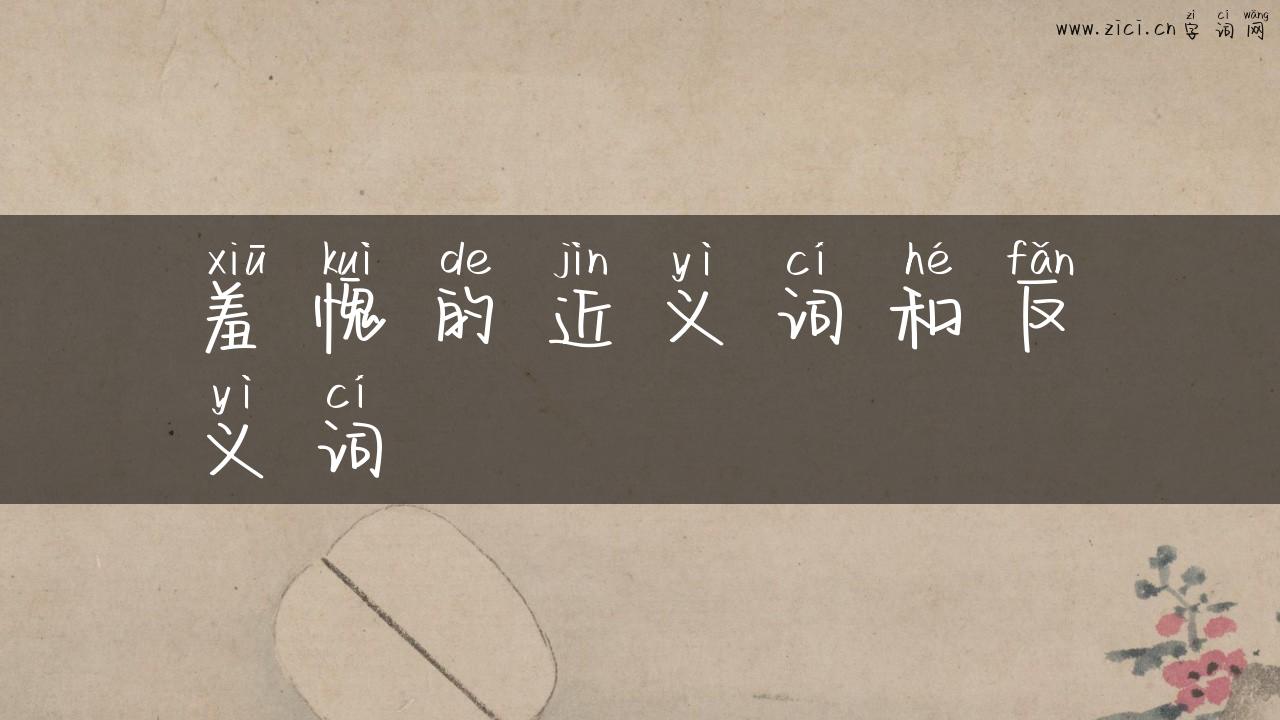 zì cí wǎng
www.zici.cn字词网
xiū kuì de jìn yì cí hé fǎn
羞愧的近义词和反
yì cí
义词